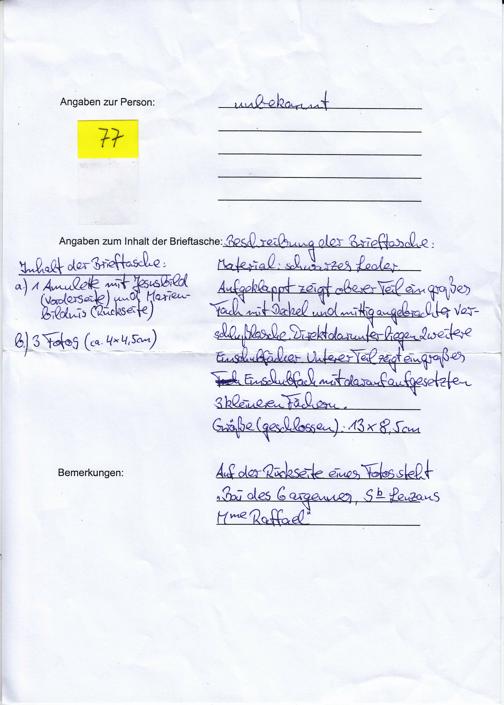 Angaben zur Person: unbekannt
77
Angaben zum Inhalt der Brieftasche: Beschreibung der Brieftasche:
Material: schwarzes Leder
Aufgeklappt zeigt oberer Teil ein großes
Fach mit Deckel und mittig angebrachter Ver-
schlußlasche Direkt darunter liegen 2 weitere
Einschubfächer Unterer Teil zeigt ein großes
Einschubfach mit darauf aufgesetzten
3 kleineren Fächern.
Größe (geschlossen): 13 x 8,5cm
Inhalt der Brieftasche:
a) 1 Amulette mit Jesusbild
(Vorderseite) und Marien-
bildnis (Rückseite)
b) 3 Fotos (ca. 4x4,5cm)
Bemerkungen: Auf der Rückseite eines Fotos steht
„Bai des Gargenner, Sb Lenzans
Mme Raffael"